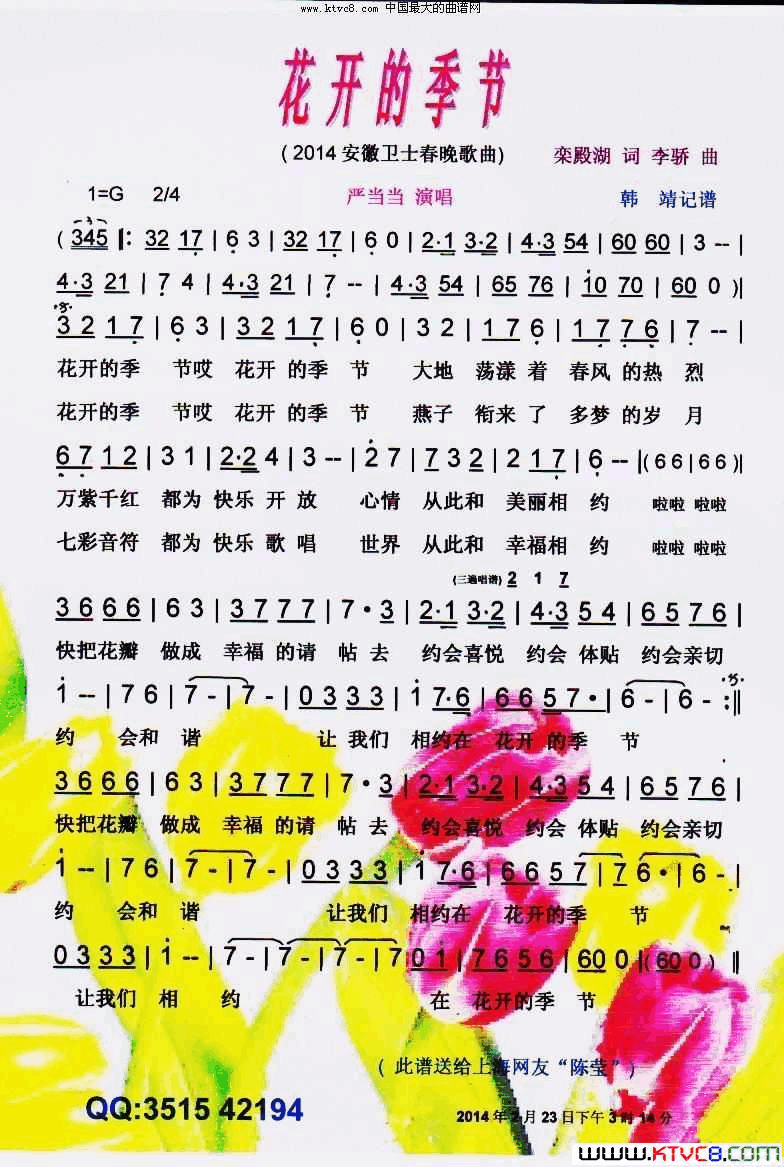 www.ktvc8.com 中国最大的曲谱网
花开的季节
(2014安徽卫士春晚歌曲) 栾殿湖 词 李骄 曲
1=G 2/4 严当当 演唱 韩 靖记谱
( 345 |: 32 17 | 6 3 | 32 17 | 6 0 | 2·1 3·2 | 4·3 54 | 60 60 | 3 -- |
4·3 21 | 7 4 | 4·3 21 | 7 -- | 4·3 54 | 65 76 | 10 70 | 60 0 )|
3 2 1 7 | 6 3 | 3 2 1 7 | 6 0 | 3 2 | 1 7 6 | 1 7 7 6 | 7 -- |
花开的季 节哎 花开 的季 节 大地 荡漾 着 春风 的热 烈
花开的季 节哎 花开 的季 节 燕子 衔来 了 多梦 的岁 月
6 7 1 2 | 3 1 | 2·2 4 | 3 -- | 2 7 | 7 3 2 | 2 1 7 | 6 -- | ( 6 6 | 6 6 )|
万紫千红 都为 快乐 开 放 心情 从此和 美丽相 约 啦啦 啦啦
七彩音符 都为 快乐 歌 唱 世界 从此和 幸福相 约 啦啦 啦啦
(三遍唱谱) 2 1 7
3 6 6 6 | 6 3 | 3 7 7 7 | 7 · 3 | 2·1 3·2 | 4·3 5 4 | 6 5 7 6 |
快把花瓣 做成 幸福 的请 帖 去 约会喜悦 约会 体贴 约会亲切
1 -- | 7 6 | 7 - | 7 - | 0 3 3 3 | 1 7·6 | 6 6 5 7 · | 6 - | 6 - :||
约 会和 谐 让 我们 相约在 花开 的季 节
3 6 6 6 | 6 3 | 3 7 7 7 | 7 · 3 | 2·1 3·2 | 4·3 5 4 | 6 5 7 6 |
快把花瓣 做成 幸福 的请 帖 去 约会喜悦 约会 体贴 约会亲切
1 -- | 7 6 | 7 - | 7 - | 0 3 3 3 | 1 7·6 | 6 6 5 7 | 7 6 · | 6 - |
约 会和 谐 让我们 相约在 花开的季 节
0 3 3 3 | 1 -- | 7 - | 7 - | 7 - | 7 - | 7 | 0 1 | 7 6 5 6 | 60 0 | ( 60 0 ) ||
让我们 相 约 在 花开的季 节
( 此谱送给上海网友“陈莹”)
QQ:3515 42194
2014年2月23日下午3时14分
www.KTVC8.com